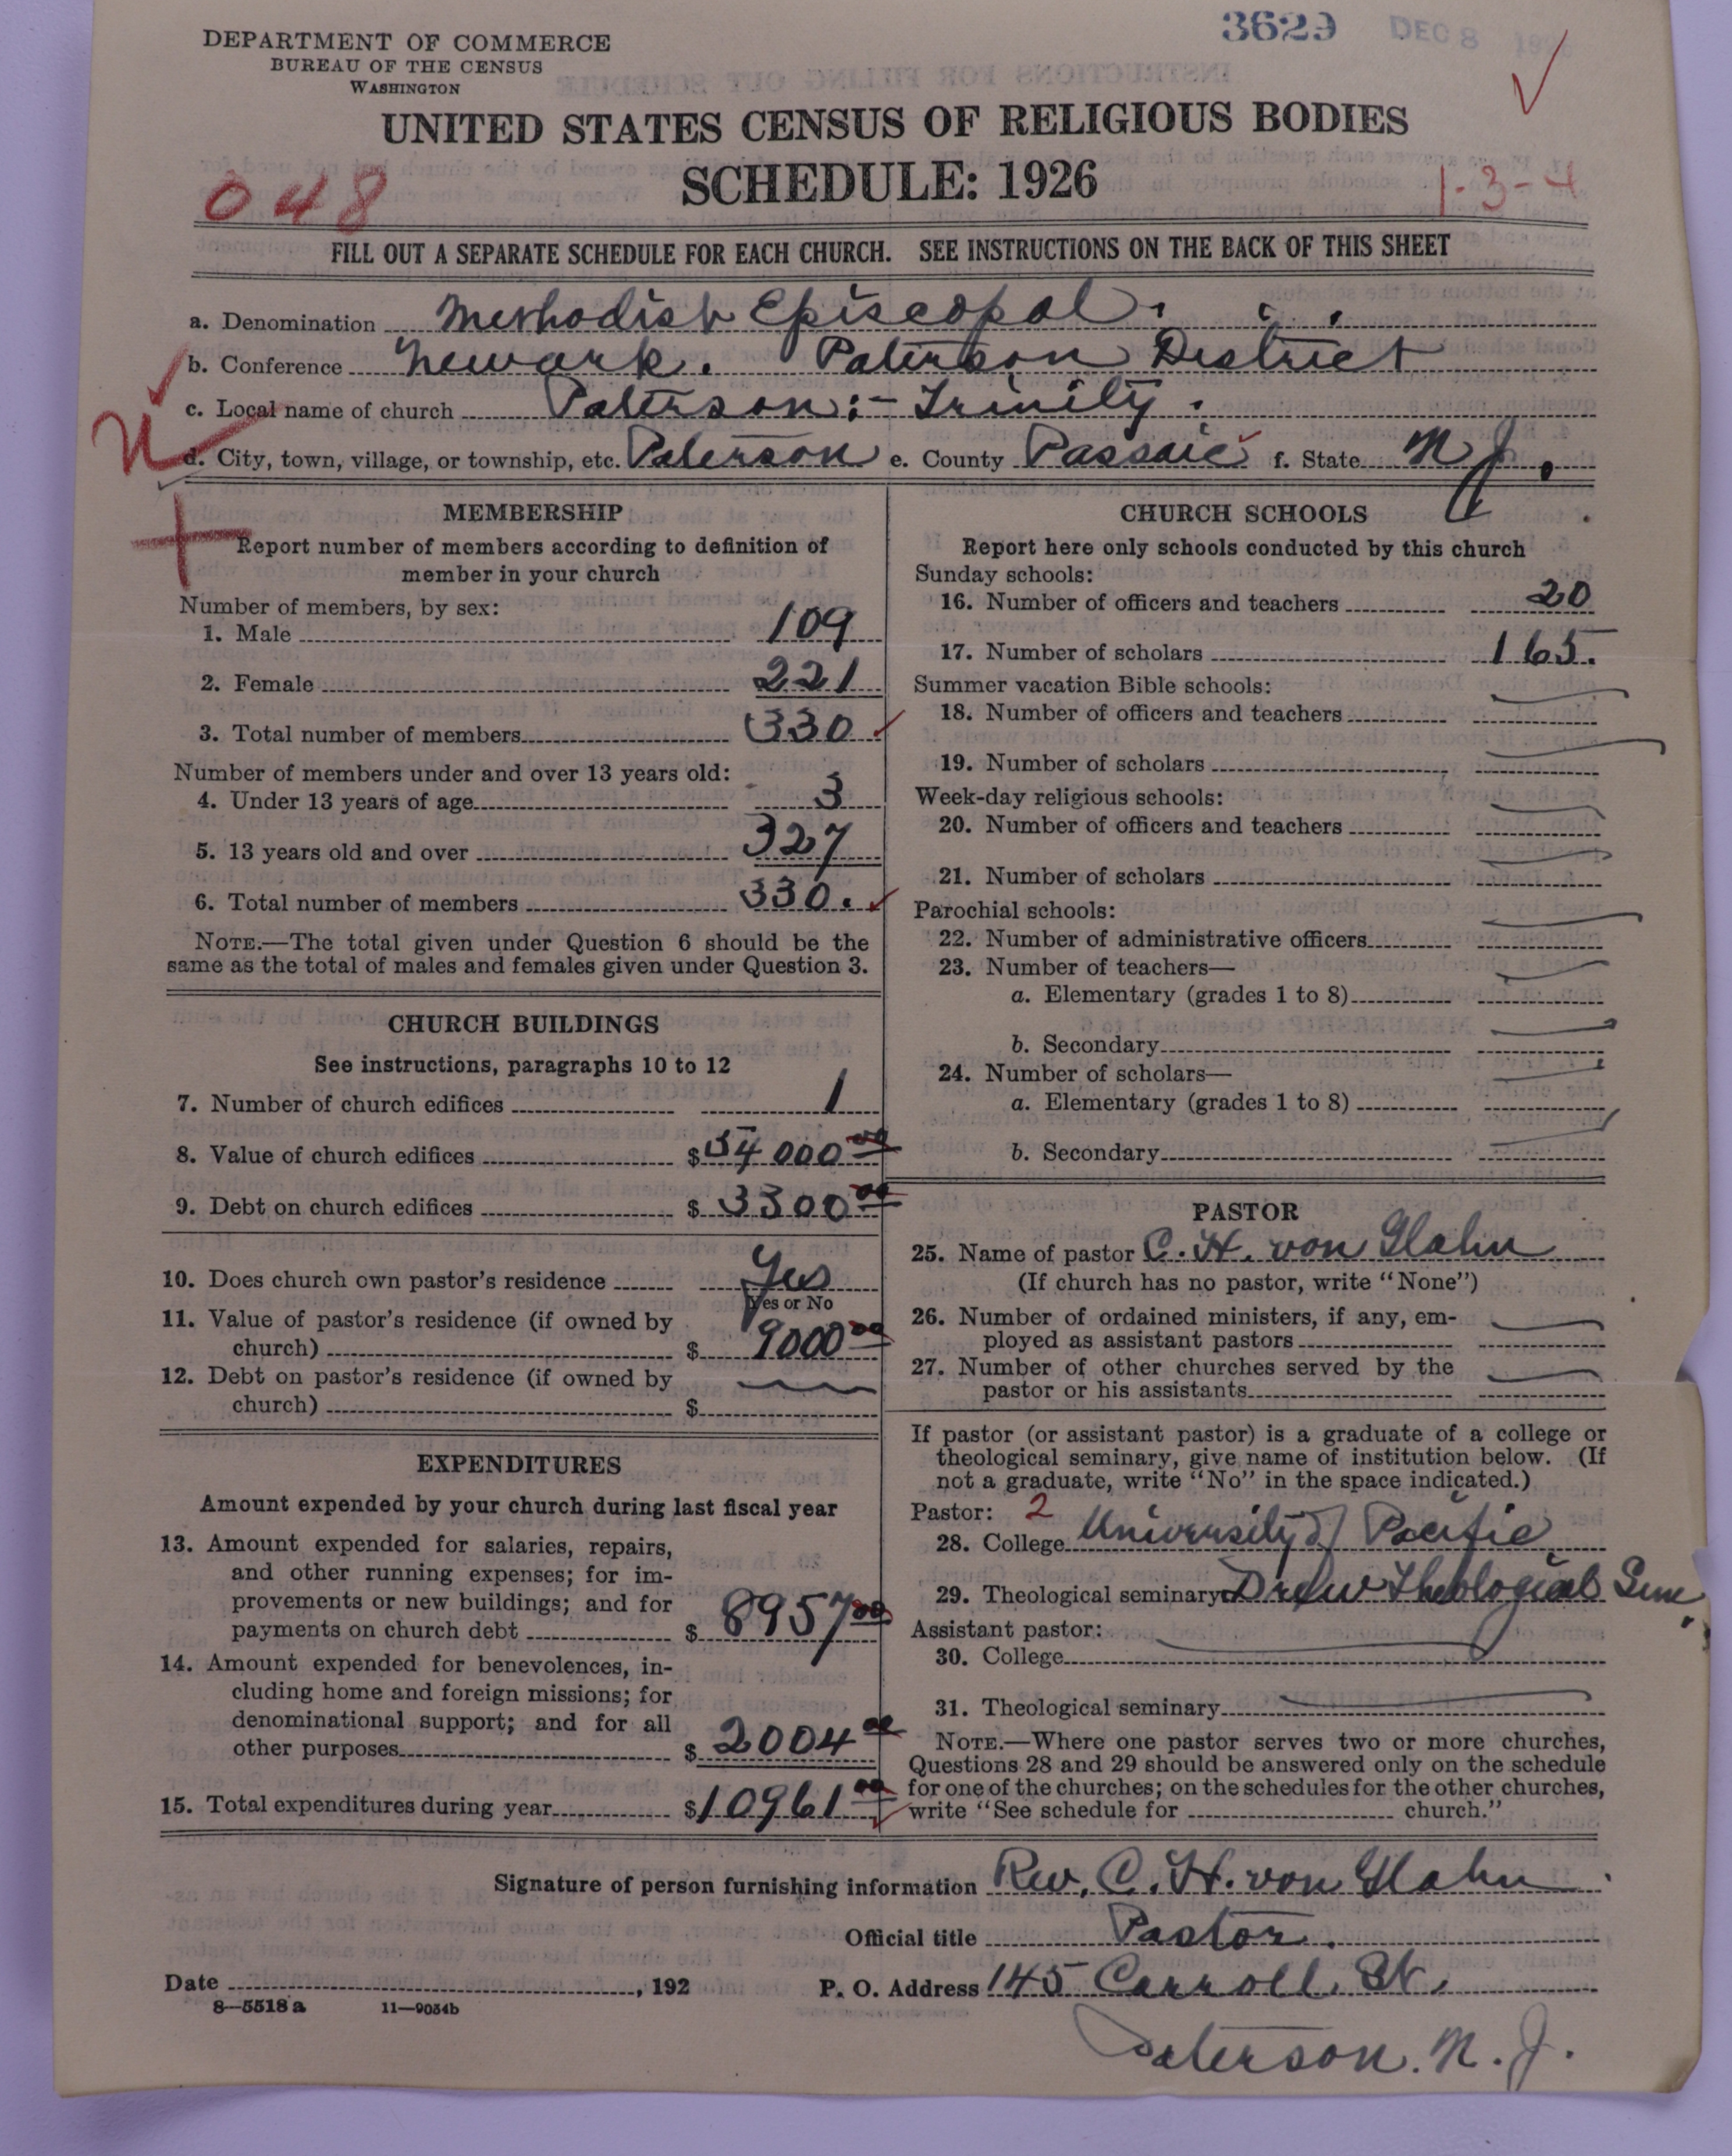 3629 DEC 8
DEPARTMENT OF COMMERCE
BUREAU OF THE CENSUS
WASHINGTON
UNITED STATES CENSUS OF RELIGIOUS BODIES
SCHEDULE: 1926
048
1-3-4
FILL OUT A SEPARATE SCHEDULE FOR EACH CHURCH. SEE INSTRUCTIONS ON THE BACK OF THIS SHEET
a. Denomination Methodist Episcopal.
b. Conference Newark. Paterson District
c. Local name of church Paterson:- Trinity.
d. City, town, village, or township, etc. Paterson e. County Passaic f. State N J.
MEMBERSHIP
Report number of members according to definition of
member in your church
Number of members, by sex:
1. Male 109
2. Female 221
3. Total number of members 330
Number of members under and over 13 years old:
4. Under 13 years of age 3
5. 13 years old and over 327
6. Total number of members 330.
NOTE.—The total given under Question 6 should be the
same as the total of males and females given under Question 3.
CHURCH BUILDINGS
See instructions, paragraphs 10 to 12
7. Number of church edifices 1
8. Value of church edifices $54000 00
9. Debt on church edifices $3300 00
10. Does church own pastor's residence Yes
Yes or No
11. Value of pastor's residence (if owned by
church) $ 9000 00
12. Debt on pastor's residence (if owned by
church) $
EXPENDITURES
Amount expended by your church during last fiscal year
13. Amount expended for salaries, repairs,
and other running expenses; for im-
provements or new buildings; and for
payments on church debt $ 8957 00
14. Amount expended for benevolences, in-
cluding home and foreign missions; for
denominational support; and for all
other purposes $ 2004 00
15. Total expenditures during year $10961 00
CHURCH SCHOOLS
Report here only schools conducted by this church
Sunday schools:
16. Number of officers and teachers 20
17. Number of scholars 165.
Summer vacation Bible schools:
18. Number of officers and teachers
19. Number of scholars
Week-day religious schools:
20. Number of officers and teachers
21. Number of scholars
Parochial schools:
22. Number of administrative officers
23. Number of teachers—
a. Elementary (grades 1 to 8)
b. Secondary
24. Number of scholars—
a. Elementary (grades 1 to 8)
b. Secondary
PASTOR
25. Name of pastor C. H. von Glahn
(If church has no pastor, write "None")
26. Number of ordained ministers, if any, em-
ployed as assistant pastors
27. Number of other churches served by the
pastor or his assistants
If pastor (or assistant pastor) is a graduate of a college or
theological seminary, give name of institution below. (If
not a graduate, write "No" in the space indicated.)
Pastor: 2
28. College University of Pacific
29. Theological seminary Drew Theological Sem.
Assistant pastor:
30. College
31. Theological seminary
NOTE.—Where one pastor serves two or more churches,
Questions 28 and 29 should be answered only on the schedule
for one of the churches; on the schedules for the other churches,
write "See schedule for church."
Signature of person furnishing information Rev. C. H. von Glahn
Official title Pastor.
Date , 192 P. O. Address 145 Carroll St.
8—5518 a 11—9034b
Paterson. N. J.